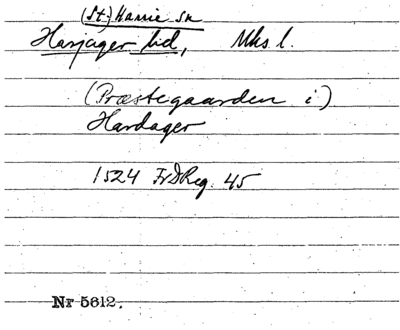 (St.) Harrie sn
Harjager hd, Mks l.
(Præstegaarden i)
Hardager
1524 FrDReg. 45
Nr 5612.